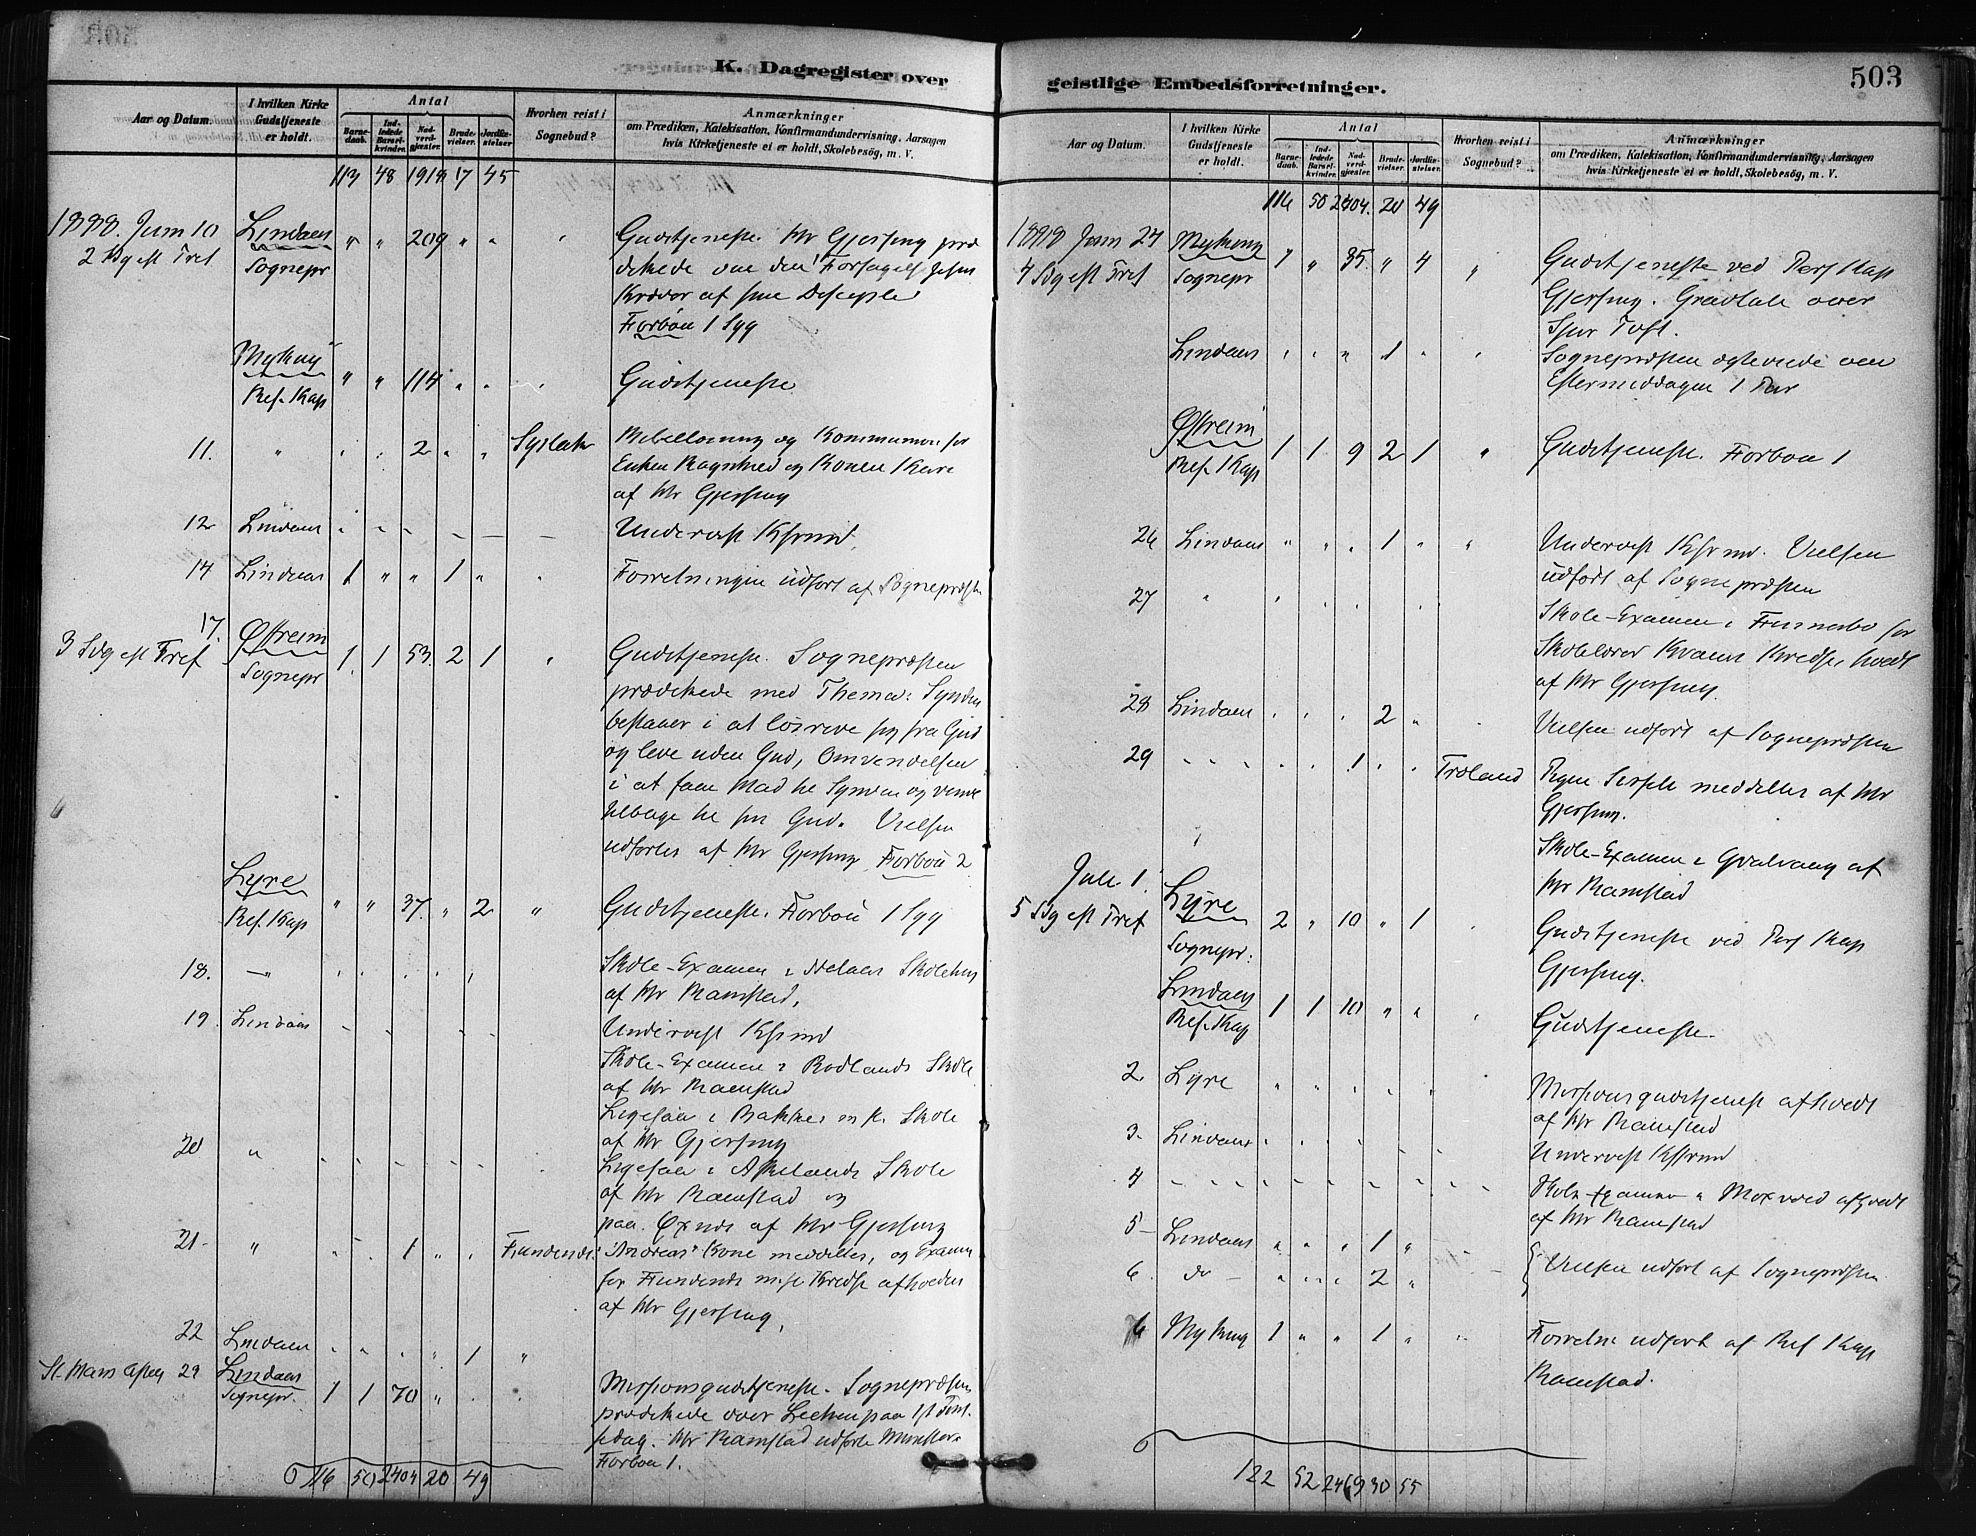 K. Dagregister over
Aar og Datum.
I hvilken Kirke Gudstjeneste er holdt.
Antal
Barnedaab.
Indledede Barselkvinder.
Nadverdgjæster.
Brudevielser.
Jordfæstelser
Hvorhen reist i Sognebud?
Anmærkninger
om Prædiken, Katekisation, Konfirmandundervisning, Aarsagen
hvis Kirketjeneste ei er holdt, Skolebesøg, m. V.
113 48 1919 17 45
1888. Juni 10 Lindaas " " 209 " " " Gudstjeneste. Hr Gjersing præ
2 Sdg eft Tref Sognepr dikede om den Forsagelse Jesus
Kræver af sine Disciple
Forbøn 1 Syg
Myking
Ref. Kap " " 114 " " " Gudstjeneste
11. " " " 2 " " og Kommunion for
Enken og Konen Kari
af Hr Gjersing
12 Lindaas Undervist Kfrmd.
14 Lindaas 1 " " 1 " " Forretningen udført af Sognepræsten
17. Østreim
3 Sdg eft Tref Sognepr 1 1 53 2 1 " Gudstjeneste. Sognepræsten
prædikede med Thema: Synden
bestaaer i at løsrive sig fra Gud
og leve uden Gud, Omvendelsen
i at faae Mod til Synden og vende
tilbage til sin Gud. Vielsen
udførtes af Hr Gjersing. Forbøn 2
Lyre
Ref. Kap " " 37 " 2 " Gudstjeneste. Forbøn 1 Syg
18. Skole-Examen i Skolehus
af Hr Ramstad.
19. Lindaas Undervist Kfrmd
Skole-Examen i Rodlands Skole
af Hr Ramstad
Ligesaa i m. fl. Skole
af Hr Gjersing
20 " Ligesaa i Skole
af Hr Ramstad og
paa af Hr Gjersing
21 " 1 " Andreas' Kone meddeltes, og Examen
for Kredse afholdes
af Hr Gjersing.
22 Lindaas 1 "
St. Hans Aften 23 Lindaas
Sognepr. 1 1 70 " Missionsgudstjeneste. Sognepræsten
prædikede over Lectien paa
Hr Ramstad udførte
Forbøn 1.
116 50 2404 20 49
geistlige Embedsforretninger.
503
Aar og Datum.
I hvilken Kirke Gudstjeneste er holdt.
Antal
Barnedaab.
Indledede Barselkvinder.
Nadverdgjæster.
Brudevielser.
Jordfæstelser.
Hvorhen reist i Sognebud?
Anmærkninger
om Prædiken, Katekisation, Konfirmandundervisning, Aarsagen
hvis Kirketjeneste ei er holdt, Skolebesøg, m. V.
116 50 2404. 20 49
1888 Juni 24 Myking
4 Sdg eft Tref Sognepr 1 " 35 " 4 " Gudstjeneste ved Pers Kap
Gjersing. Gravtale over
Lindaas " " " 1 " " Sognepræsten ægteviede om
Eftermiddagen 1 Par
Østreim
Ref. Kap 1 1 9 2 1 " Gudstjeneste. Forbøn 1
26 Lindaas " " " 1 " " Undervist Kfrmd. Vielsen
udført af Sognepræsten
27 " Skole-Examen i for
Skolelærer Kredse holdt
af Hr Gjersing.
28 Lindaas 2 Vielsen udført af Sognepræsten
29 1 Troland Pigen meddeltes af Hr
Gjersing.
Skole-Examen i af
Hr Ramstad
Juli 1. Lyre
5 Sdg eft Tref Sognepr. 2 " 10 " 1 Gudstjeneste ved Pers Kap
Gjersing.
Lindaas
Ref. Kap 1 1 10 " " " Gudstjeneste.
2 Lyre Missionsgudstjeneste afholdt
af Hr Ramstad
3. Lindaas Undervist Kfrmd
4 Skole-Examen i afholdt
af Hr Ramstad
5 Lindaas " " " 1 "
6 do " " " 2 " Vielsen udført af Sognepræsten
6 Myking 1 " " 1 " Forretn udført af Ref Kap
Ramstad.
122 52 2469 30 55